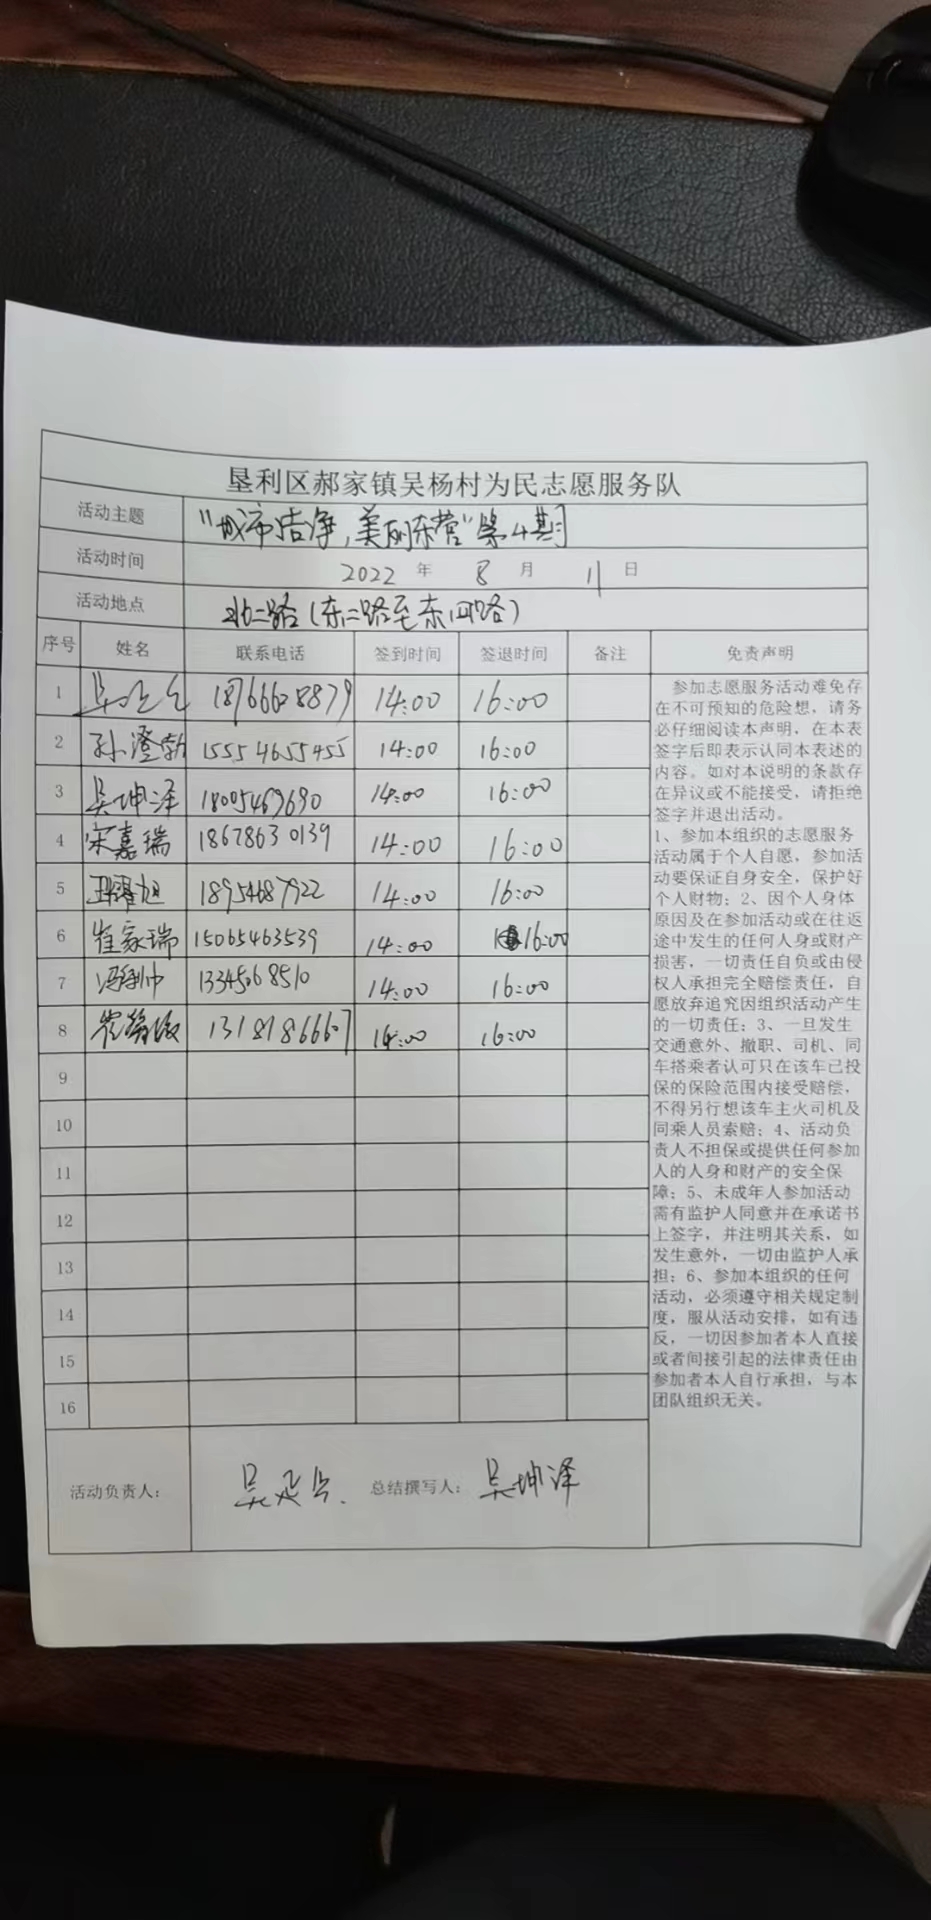 垦利区郝家镇吴杨村为民志愿服务队
活动主题 "城市洁净,美丽东营"第4期
活动时间 2022 年 8 月 11 日
活动地点 北二路(东二路至东四路)
序号 姓名 联系电话 签到时间 签退时间 备注 免责声明
1 14:00 16:00
2 孙澄勃 15554655455 14:00 16:00
3 吴坤泽 18005469690 14:00 16:00
4 宋嘉瑞 18678630139 14:00 16:00
5 18954687922 14:00 16:00
6 崔家瑞 15065463539 14:00 16:00
7 冯利帅 13345068510 14:00 16:00
8 13181866607 14:00 16:00
9
10
11
12
13
14
15
16
参加志愿服务活动难免存
在不可预知的危险想，请务
必仔细阅读本声明，在本表
签字后即表示认同本表述的
内容。如对本说明的条款存
在异议或不能接受，请拒绝
签字并退出活动。
1、参加本组织的志愿服务
活动属于个人自愿，参加活
动要保证自身安全，保护好
个人财物；2、因个人身体
原因及在参加活动或在往返
途中发生的任何人身或财产
损害，一切责任自负或由侵
权人承担完全赔偿责任，自
愿放弃追究因组织活动产生
的一切责任；3、一旦发生
交通意外、撤职、司机、同
车搭乘者认可只在该车已投
保的保险范围内接受赔偿，
不得另行想该车主火司机及
同乘人员索赔；4、活动负
责人不担保或提供任何参加
人的人身和财产的安全保
障；5、未成年人参加活动
需有监护人同意并在承诺书
上签字，并注明其关系，如
发生意外，一切由监护人承
担；6、参加本组织的任何
活动，必须遵守相关规定制
度，服从活动安排，如有违
反，一切因参加者本人直接
或者间接引起的法律责任由
参加者本人自行承担，与本
团队组织无关。
活动负责人： 总结撰写人： 吴坤泽